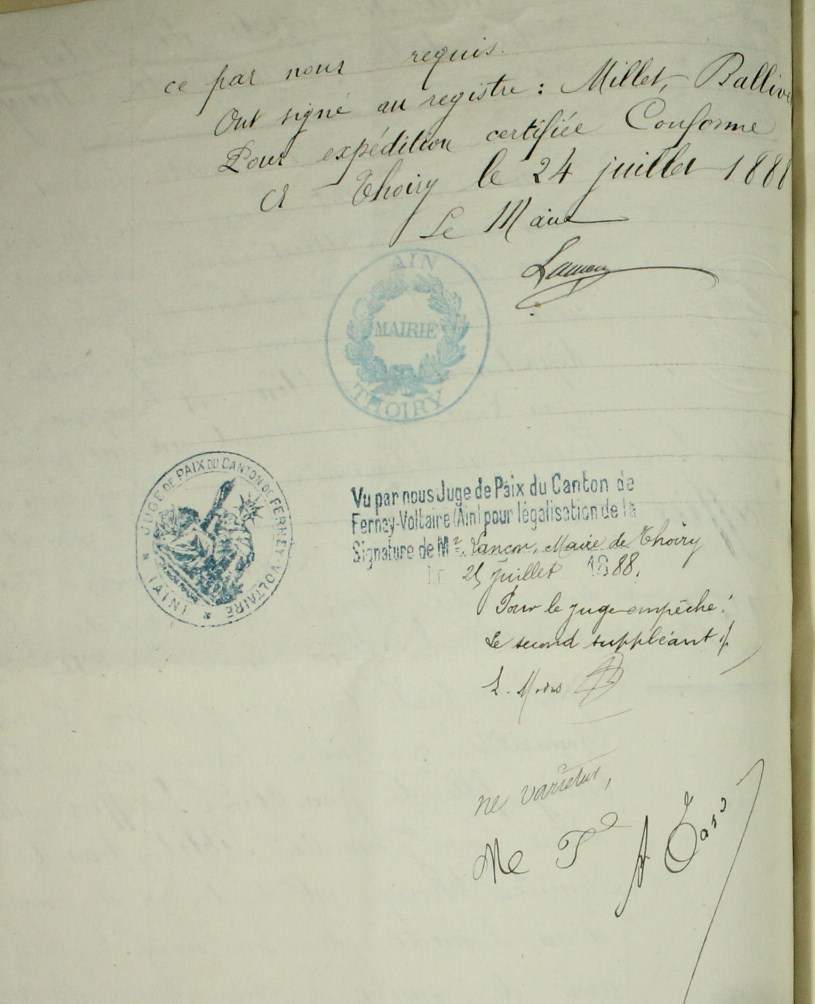 ce par nous requis.
Ont signé au registre : Millet, Balliv
Pour expédition certifiée Conforme
A Thoiry le 24 juillet 188
Le Maire
AIN
MAIRIE
THOIRY
JUGE DE PAIX DU CANTON DE FERNEY-VOLTAIRE
* (AIN) *
Vu par nous Juge de Paix du Canton de
Ferney-Voltaire (Ain) pour légalisation de la
Signature de Mr. Lançon, Maire de Thoiry
25 juillet 1888.
Pour le juge empêché :
Le second suppléant
ne varietur,